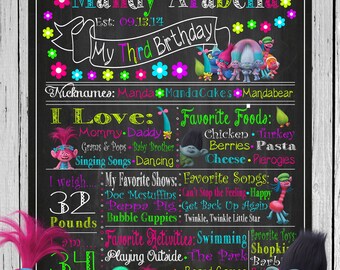 Mandy Arabella
Est: 09.13.14
My Thrd Birthday
Nicknames: Manda MandaCakes Mandabear
I Love:
Mommy Daddy
Grams & Pops Baby Brother
Singing Songs Dancing
Favorite Foods:
Chicken Turkey
Berries Pasta
Cheese Peroges
I weigh....
32
Pounds
My Favorite Shows:
Doc Mcstuffins
Peppa Pig
Bubble Guppies
Favorite Songs:
Can't Stop the Feeling Happy
Get Back Up Again
Twinkle, Twinkle Little Star
I am
34
Favorite Activities: Swimming
Playing Outside The Park
Board Games
Favorite Toys:
Shopkin
Barb